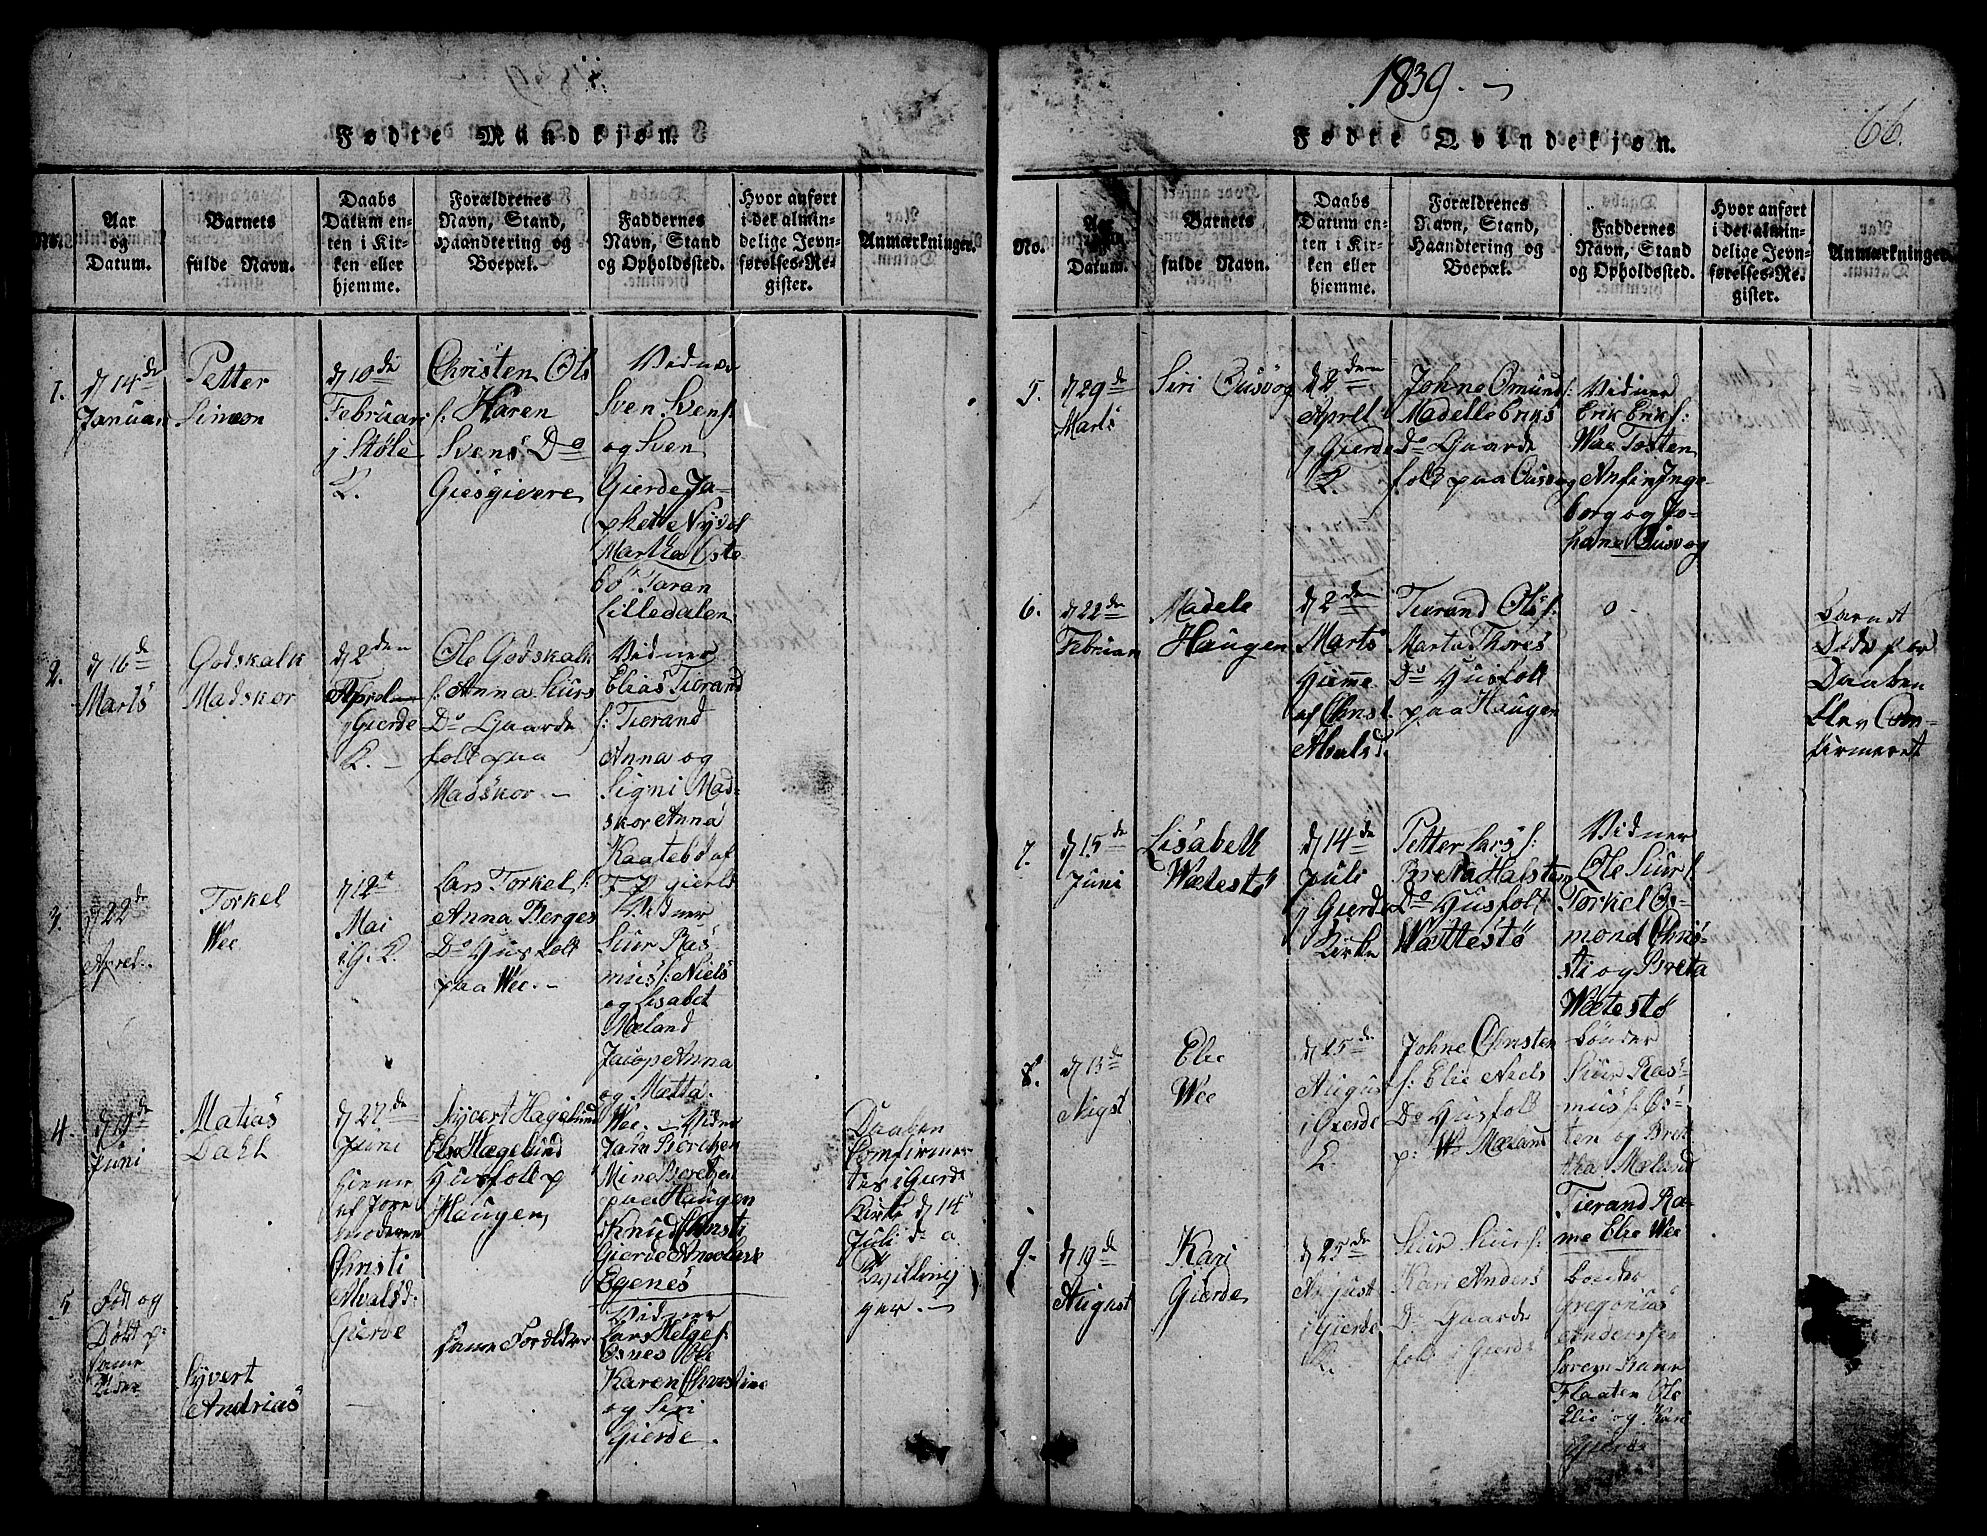 Fødte Mandkjøn.
No.
Aar
og
Datum.
Barnets
fulde Navn.
Daabs
Datum en-
ten i Kir-
ken eller
hjemme.
Forældrenes
Navn, Stand,
Haandtering og
Boepæl.
Faddernes
Navn, Stand
og Opholdssted.
Hvor anført
i det almin-
delige Jevn-
førelses-Re-
gister.
Anmærkninger.
1.
d 14de
Januar
Petter
Simon
d 10de
Februar
j Støle
K.
Christen Ols
s: Karen
Svens Do
Giesgivere
Vidner
Sven Svens:
og Sven
Gierde Ja-
Martha Øste
bø Taran
Lilledalen
2.
d 16de
Marts
Godskalk
Madskor
d 2den
Aprel
j Gierde
K. -
Ole Godskalk
s: Anna Siurs
Do Gaarde
folk paa
Madskor. -
Vidner
Elias Tierand
s: Tierand
Anna og
Signi Mad-
skor Anna
Kaatebø af
3.
d 22de
Aprel.
Torkel
Wee
d 12t
Mai
i G. K.
Lars Torkels:
Anna Berges
Do Husfolk
paa Wee. -
Vidner
Siur Ras-
mus s: Niels
og Lisabet
Mæland
Jacop Anna
og Matta
Wee. -
4.
d 19de
Juni
Matias
Dahl
d 27de
Juni
hieme
af Jore
moderen
Christi
Alvalsd:
Gierde
Syvert Hagelund
Else Hægelund
Husfolk p
Haugen
Vidner
Jahn Boretzen
Mine Boretzen
paa Haugen
Knud Christi
Gierde Ane
Egenes
Daaben
Comfirmer
tes i Gierde
Kirke d 14
Juli d: a
Tvilling
ger. -
5
Født og
Døbt p:
same
Tider
Syvert
Andrias
same Foreldre
Vidner
Lars Helges:
Øsnes Ole
Karen Christine
og Siri
Gierde.
1839. -
66.
Fødte Qvindekjøn.
No.
Aar
og
Datum.
Barnets
fulde Navn.
Daabs
Datum en-
ten i Kir-
ken eller
hjemme.
Forældrenes
Navn, Stand,
Haandtering og
Boepæl.
Faddernes
Navn, Stand
og Opholdssted.
Hvor anført
i det almin-
delige Jevn-
førelses-Re-
gister.
Anmærkninger.
5.
d 29de
Marts
Siri Øusvog
d 2den
Aprel
j Gierde
K.
Johne Omund s:
Madelle Eriks
Do Gaarde
folk paa Øusvog
Vidner
Erik Erik s:
Wae Tosten
Anfin Inge-
borg og Jo-
hane Øusvog
6.
d 22de
Februar
Madele
Haugen
d 2den
Marts
Hiemme
af Christ.
Alvalsd
Tierand Ols s:
Marta Thores
Do Husfolk
paa Haugen
0 -
Barnet
Døde før
Daaben
blev Com-
firmeret
7.
d 15de
Juni
Lisabeth
Wætestø
d 14de
Juli
j Gierde
Kirke
Petter Lars s:
Breta Halsten
Do Husfolk
Wættestø
Vidner
Ole Siur s
Torkel Os-
mond Chris-
ti og Breta
Wætestø
8.
d 13de
Augst
Elie
Wee
d 25de
Augus
i Gierde
K.
Johne Christen
s: Elie Niels
Do Husfolk
p: Mæland
Bønder
Siur Ras-
mus s: Øs-
ten og Bret-
tha Mæland
Tierand Ra-
me Elie Wee
9.
d 19de
August
Kari
Gierde
d 25de
August
i Gierde
K.
Siur Siur s:
Kari Anders
Do Gaarde
folk i Gierde
Bønder
Gregorius
Andersen
Flaaten Ole
Elie og Kari
Gierde